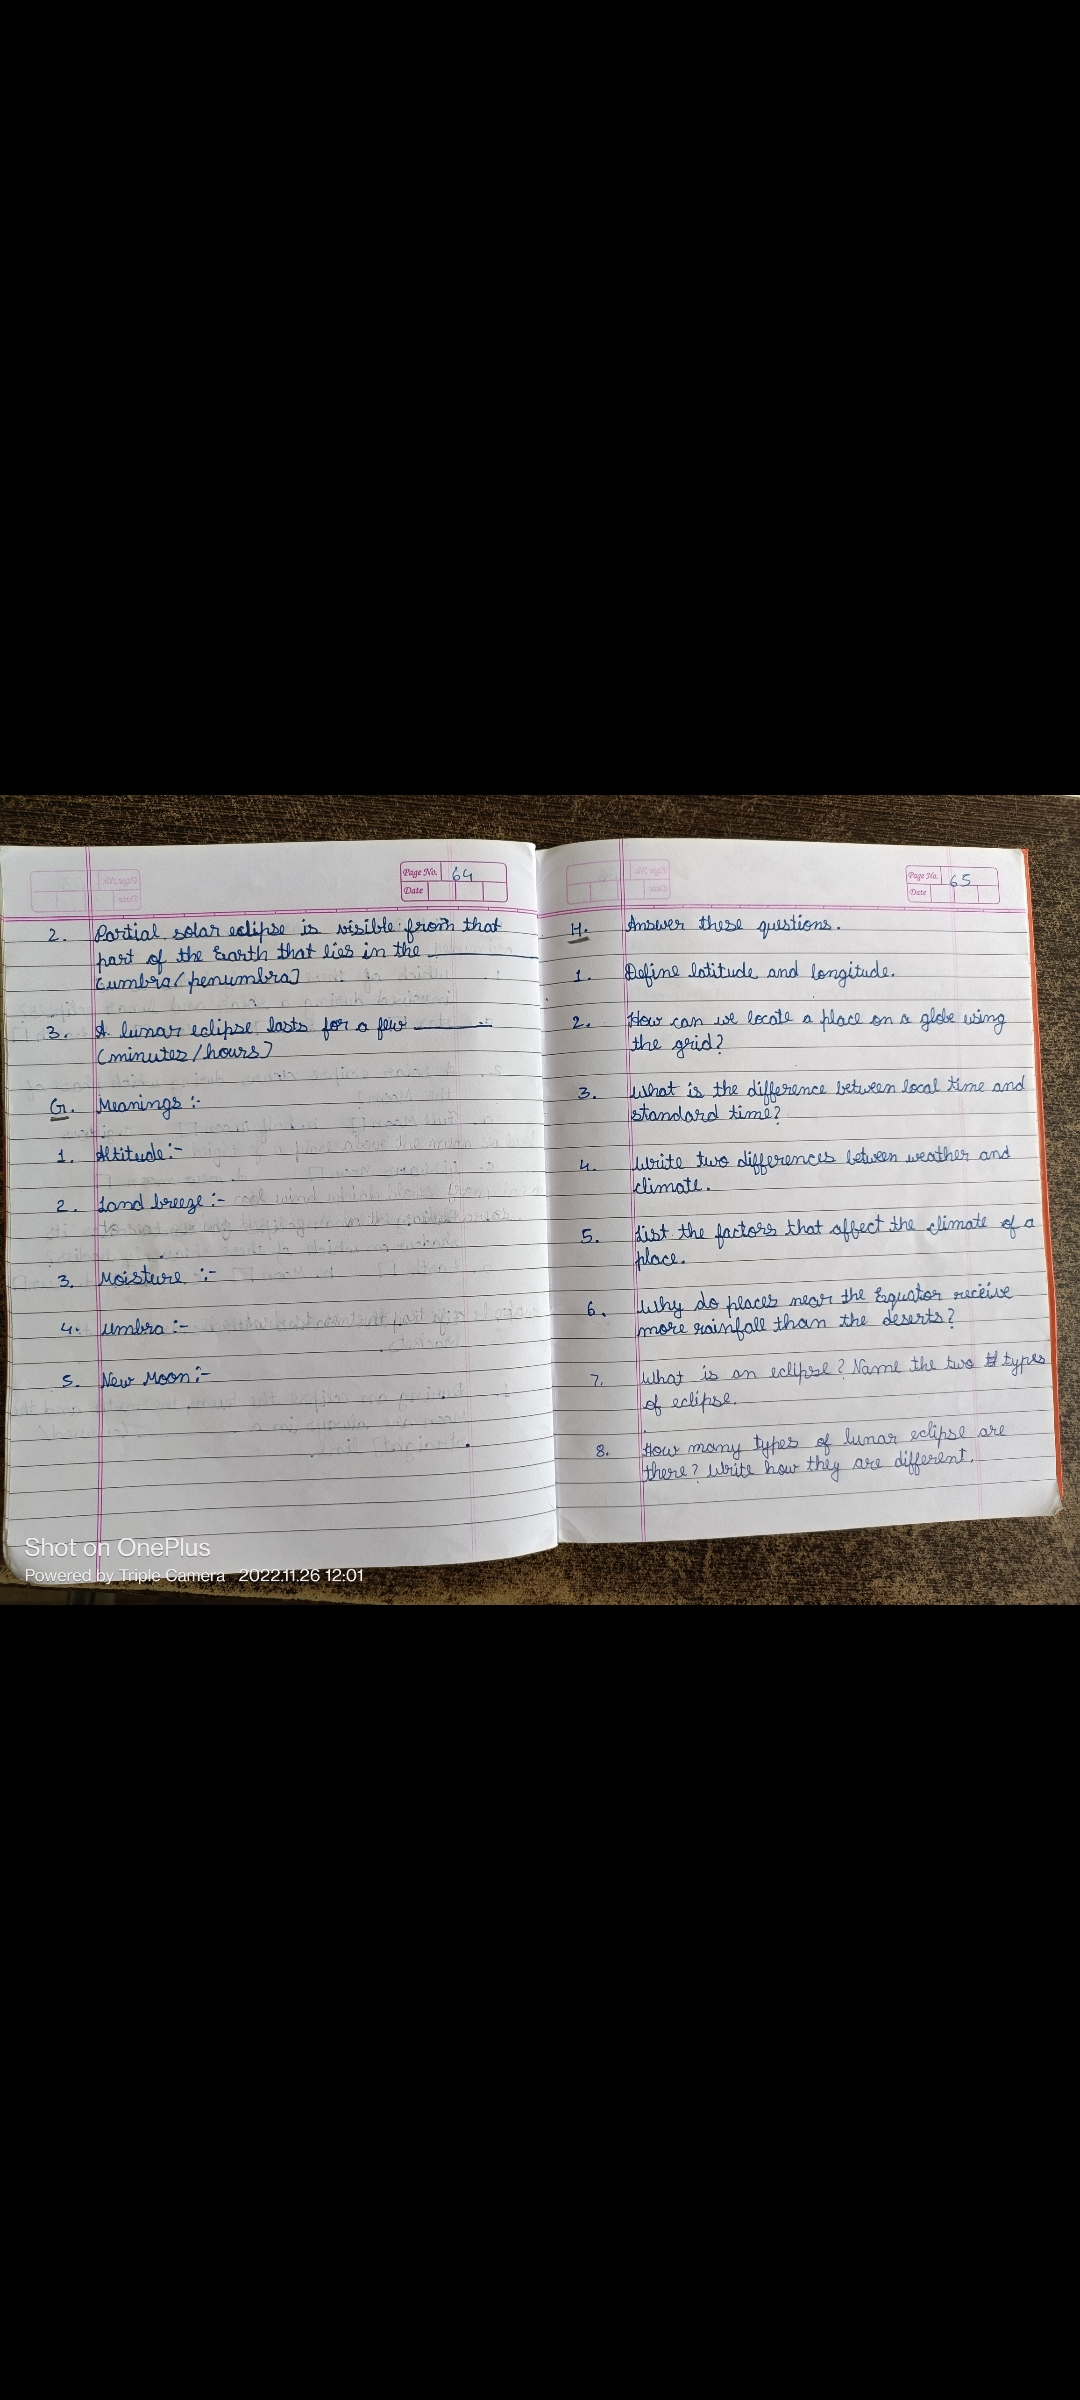 Page No. 64
Date
2. Partial solar eclipse is visible from that
part of the Earth that lies in the ________
(umbra/penumbra)
3. A lunar eclipse lasts for a few ________
(minutes/hours)
G. Meanings :-
1. Altitude :-
2. Land breeze :-
3. Moisture :-
4. Umbra :-
5. New Moon :-
Page No. 65
Date
H. Answer these questions.
1. Define latitude and longitude.
2. How can we locate a place on a globe using
the grid?
3. What is the difference between local time and
standard time?
4. Write two differences between weather and
climate.
5. List the factors that affect the climate of a
place.
6. Why do places near the Equator receive
more rainfall than the deserts?
7. What is an eclipse? Name the two types
of eclipse.
8. How many types of lunar eclipse are
there? Write how they are different.
Shot on OnePlus
Powered by Triple Camera 2022.11.26 12:01